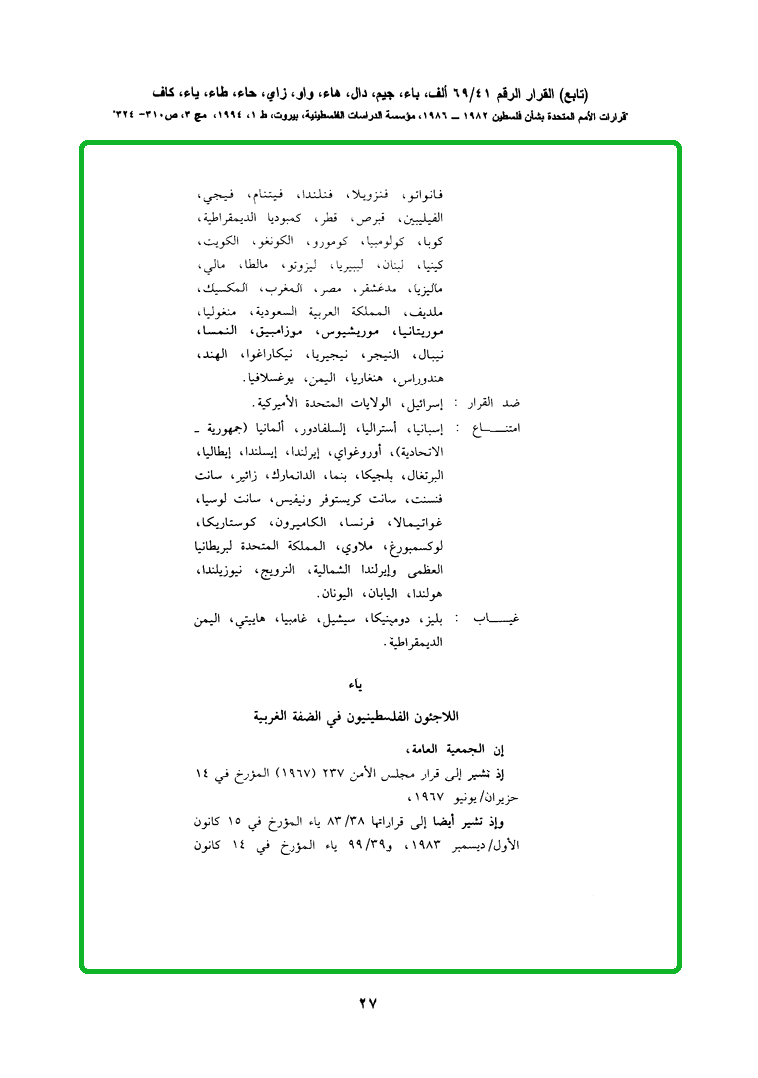 (تابع) القرار الرقم ٦٩/٤١ ألف، باء، جيم، دال، هاء، واو، زاي، حاء، طاء، ياء، كاف
"قرارات الأمم المتحدة بشأن فلسطين ١٩٨٢ ــ ١٩٨٦، مؤسسة الدراسات الفلسطينية، بيروت، ط ١، ١٩٩٤، مج ٣، ص٣١٠- ٣٢٤"
فانواتو، فنزويلا، فنلندا، فيتنام، فيجي،
الفيليبين، قبرص، قطر، كمبوديا الديمقراطية،
كوبا، كولومبيا، كومورو، الكونغو، الكويت،
كينيا، لبنان، ليبيريا، ليزوتو، مالطا، مالي،
ماليزيا، مدغشقر، مصر، المغرب، المكسيك،
ملديف، المملكة العربية السعودية، منغوليا،
موريتانيا، موريشيوس، موزامبيق، النمسا،
نيبال، النيجر، نيجيريا، نيكاراغوا، الهند،
هندوراس، هنغاريا، اليمن، يوغسلافيا.
ضد القرار : إسرائيل، الولايات المتحدة الأميركية.
امتنـــاع : إسبانيا، أستراليا، إلسلفادور، ألمانيا (جمهورية ـ
الاتحادية)، أوروغواي، إيرلندا، إيسلندا، إيطاليا،
البرتغال، بلجيكا، بنما، الدانمارك، زائير، سانت
فنسنت، سانت كريستوفر ونيفيس، سانت لوسيا،
غواتيمالا، فرنسا، الكاميرون، كوستاريكا،
لوكسمبورغ، ملاوي، المملكة المتحدة لبريطانيا
العظمى وإيرلندا الشمالية، النرويج، نيوزيلندا،
هولندا، اليابان، اليونان.
غيـــاب : بليز، دومينيكا، سيشيل، غامبيا، هاييتي، اليمن
الديمقراطية.
ياء
اللاجئون الفلسطينيون في الضفة الغربية
إن الجمعية العامة،
إذ تشير إلى قرار مجلس الأمن ٢٣٧ (١٩٦٧) المؤرخ في ١٤
حزيران/يونيو ١٩٦٧،
وإذ تشير أيضا إلى قراراتها ٨٣/٣٨ ياء المؤرخ في ١٥ كانون
الأول/ديسمبر ١٩٨٣، و٩٩/٣٩ ياء المؤرخ في ١٤ كانون
٢٧